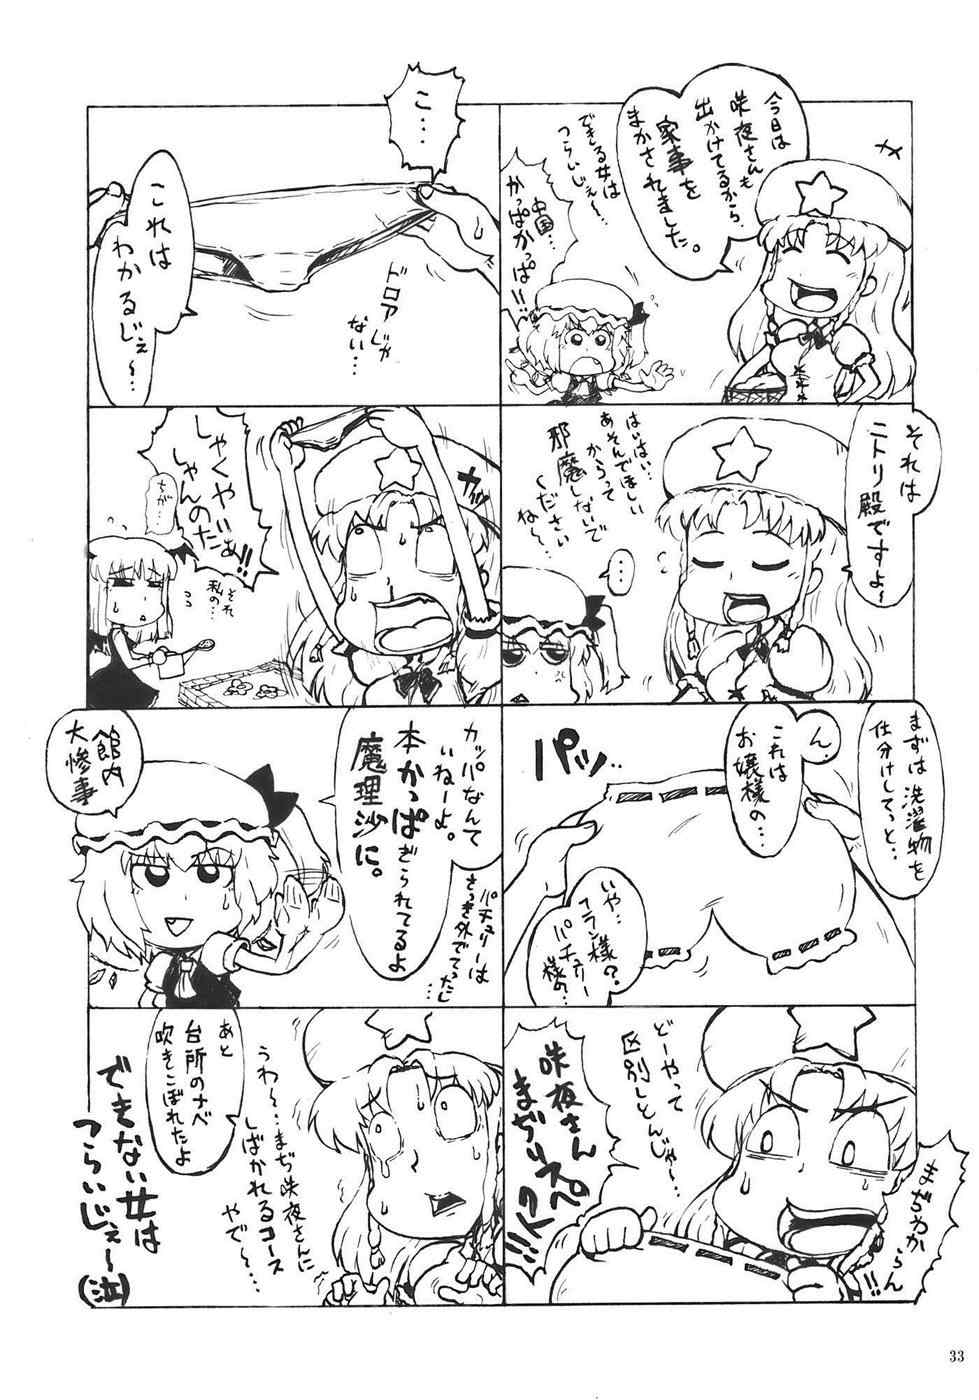 今日は
咲夜さんも
出かけてるから
家事を
まかされました。
できる女は
つらいじぇ~~
中国…
かっぱかっぱ!!
それは
ニトリ殿ですよ~
はいはい…
あそんでほしい
からって
邪魔しないで
くださいね~
…
まずは洗濯物を
仕分けしてっと…
ん。
これは
お嬢様の…
パッ
いや…
フラン様?
パチュリー
様の…
どーやって
区別しとんじゃー
まぢわからん
!!
咲夜さん
まぢリスペクト
!!!
こ…
これは
わかるじぇ~~…
ドロアじゃ
ない…
カッ
しゃくやしゃんのだぁ!!
ちが…
それ
私の…
カッパなんて
いねーよ。
本かっぱぎられてるよ
魔理沙に。
パチュリーは
さっき外でてったし…
館内
大惨事
あと
台所のナベ
吹きこぼれたよ
うわ~~…まぢ咲夜さんに
しばかれるコース
やで~…
できない女は
つらいじぇ~~(泣)
33